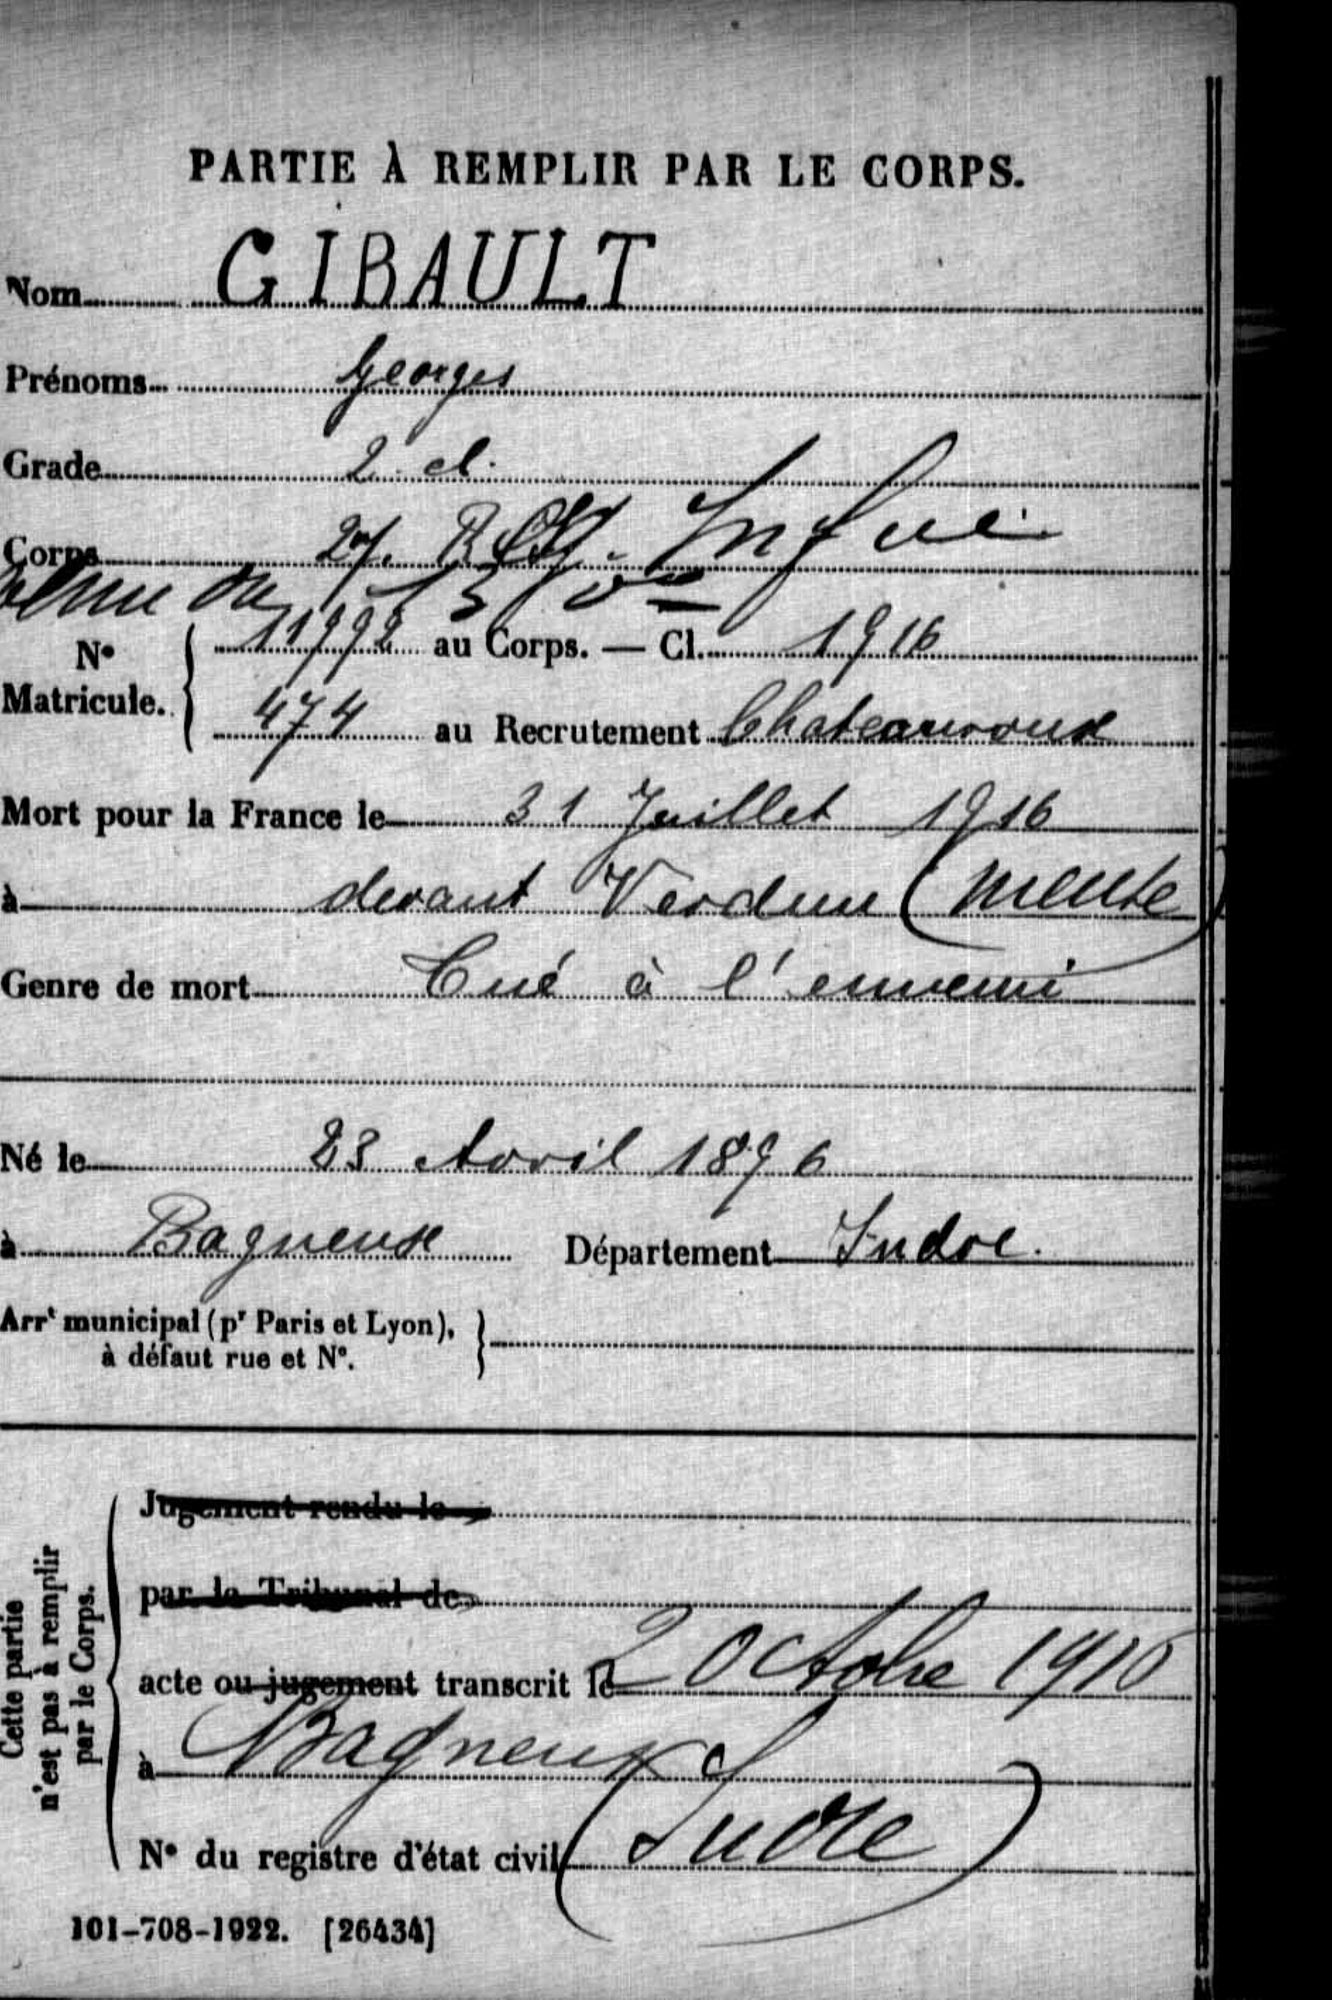 PARTIE À REMPLIR PAR LE CORPS.
Nom GIBAULT
Prénoms Georges
Grade 2. cl.
Corps 27. Infie
N° Matricule. 11992 au Corps. — Cl. 1916
474 au Recrutement Chateauroux
Mort pour la France le 31 Juillet 1916
à devant Verdun (Meuse)
Genre de mort Tué à l'ennemi
Né le 23 Avril 1896
à Bagneux Département Indre.
Arrt municipal (pr Paris et Lyon), à défaut rue et N°.
Cette partie n'est pas à remplir par le Corps.
Jugement rendu le
par le Tribunal de
acte ou jugement transcrit le 2 Octobre 1916
à Bagneux
N° du registre d'état civil (Indre)
101-708-1922. [26434]